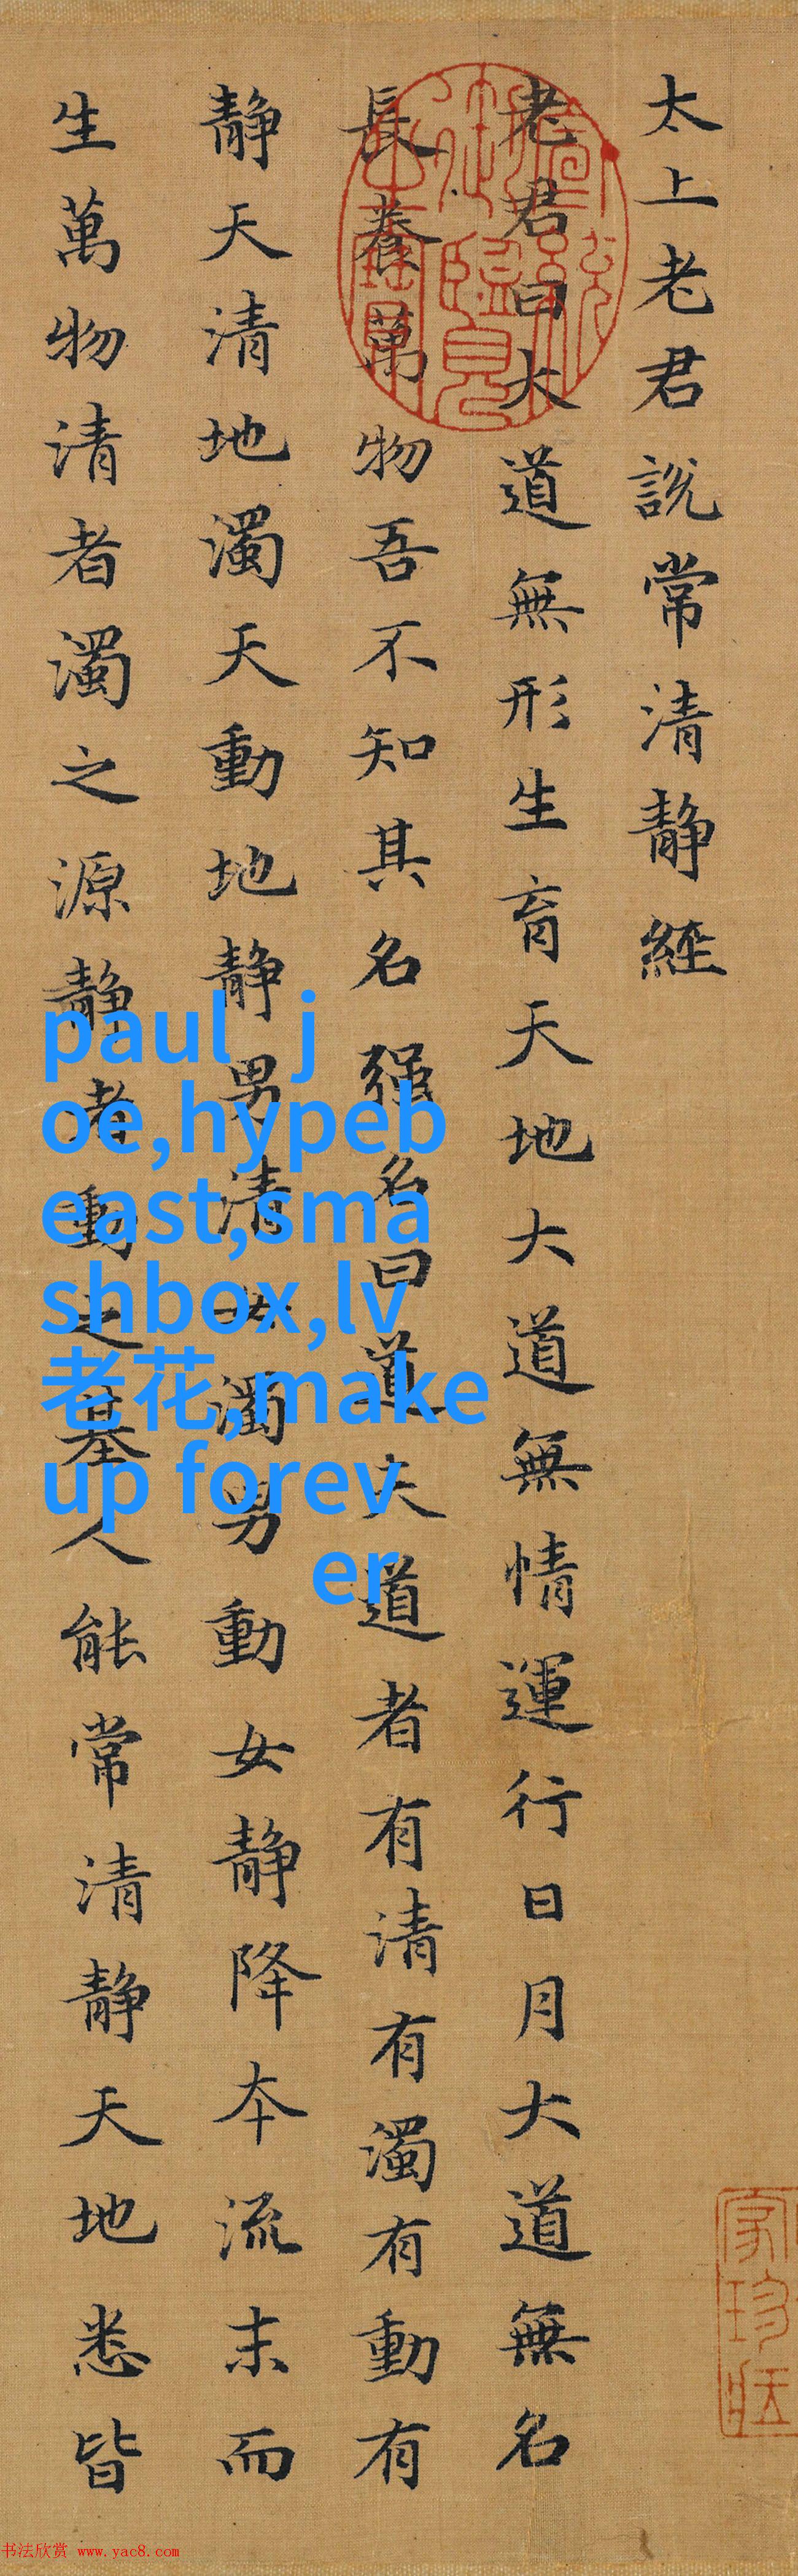 太上老君說常清静經
老君曰大道無形生育天地大道無情運行日月大道無名
長養萬物吾不知其名强名曰道夫道者有清有濁有動有
静天清地濁天動地静男清女濁男動女静降夲流末而
生萬物清者濁之源静者動之基人能常清静天地悉皆
宣統御覽之寶
paul j
oe,hypeb
east,sma
shbox,lv
老花,make
up forev
er
书法欣赏 www.yac8.com